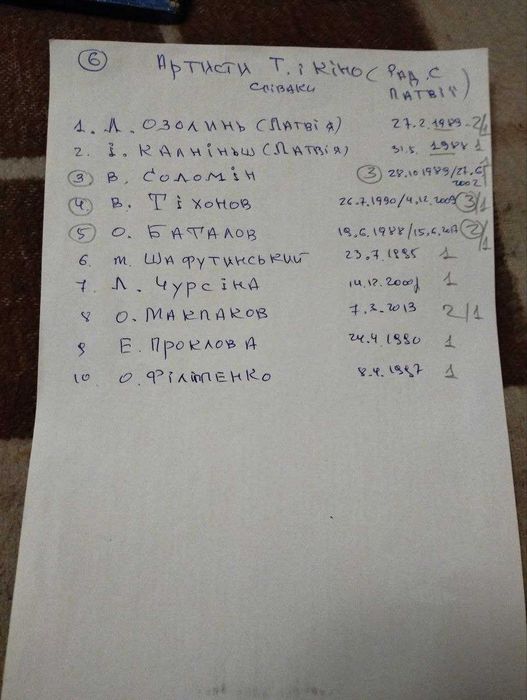 6 Артисти Т. і кіно (Рад. С
співаки Латвії)
1. Л. Озолинь (Латвія) 27.2.1989 - 2/1
2. І. Калніньш (Латвія) 31.5.1988 1
3 В. Соломін 3 28.10 1989/27.6 2002 1/1
4. В. Тіхонов 26.7.1990/4.12.2009 3/1
5 О. Баталов 19.6.1988/15.6.2017 2/1
6. М. Шафутинський 23.7.1995 1
7 Л. Чурсіна 14.12.2000 1
8 О. Макпаков 7.3.2013 2/1
9 Е. Проклова 24.4.1990 1
10 О. Філіпенко 8.4.1997 1